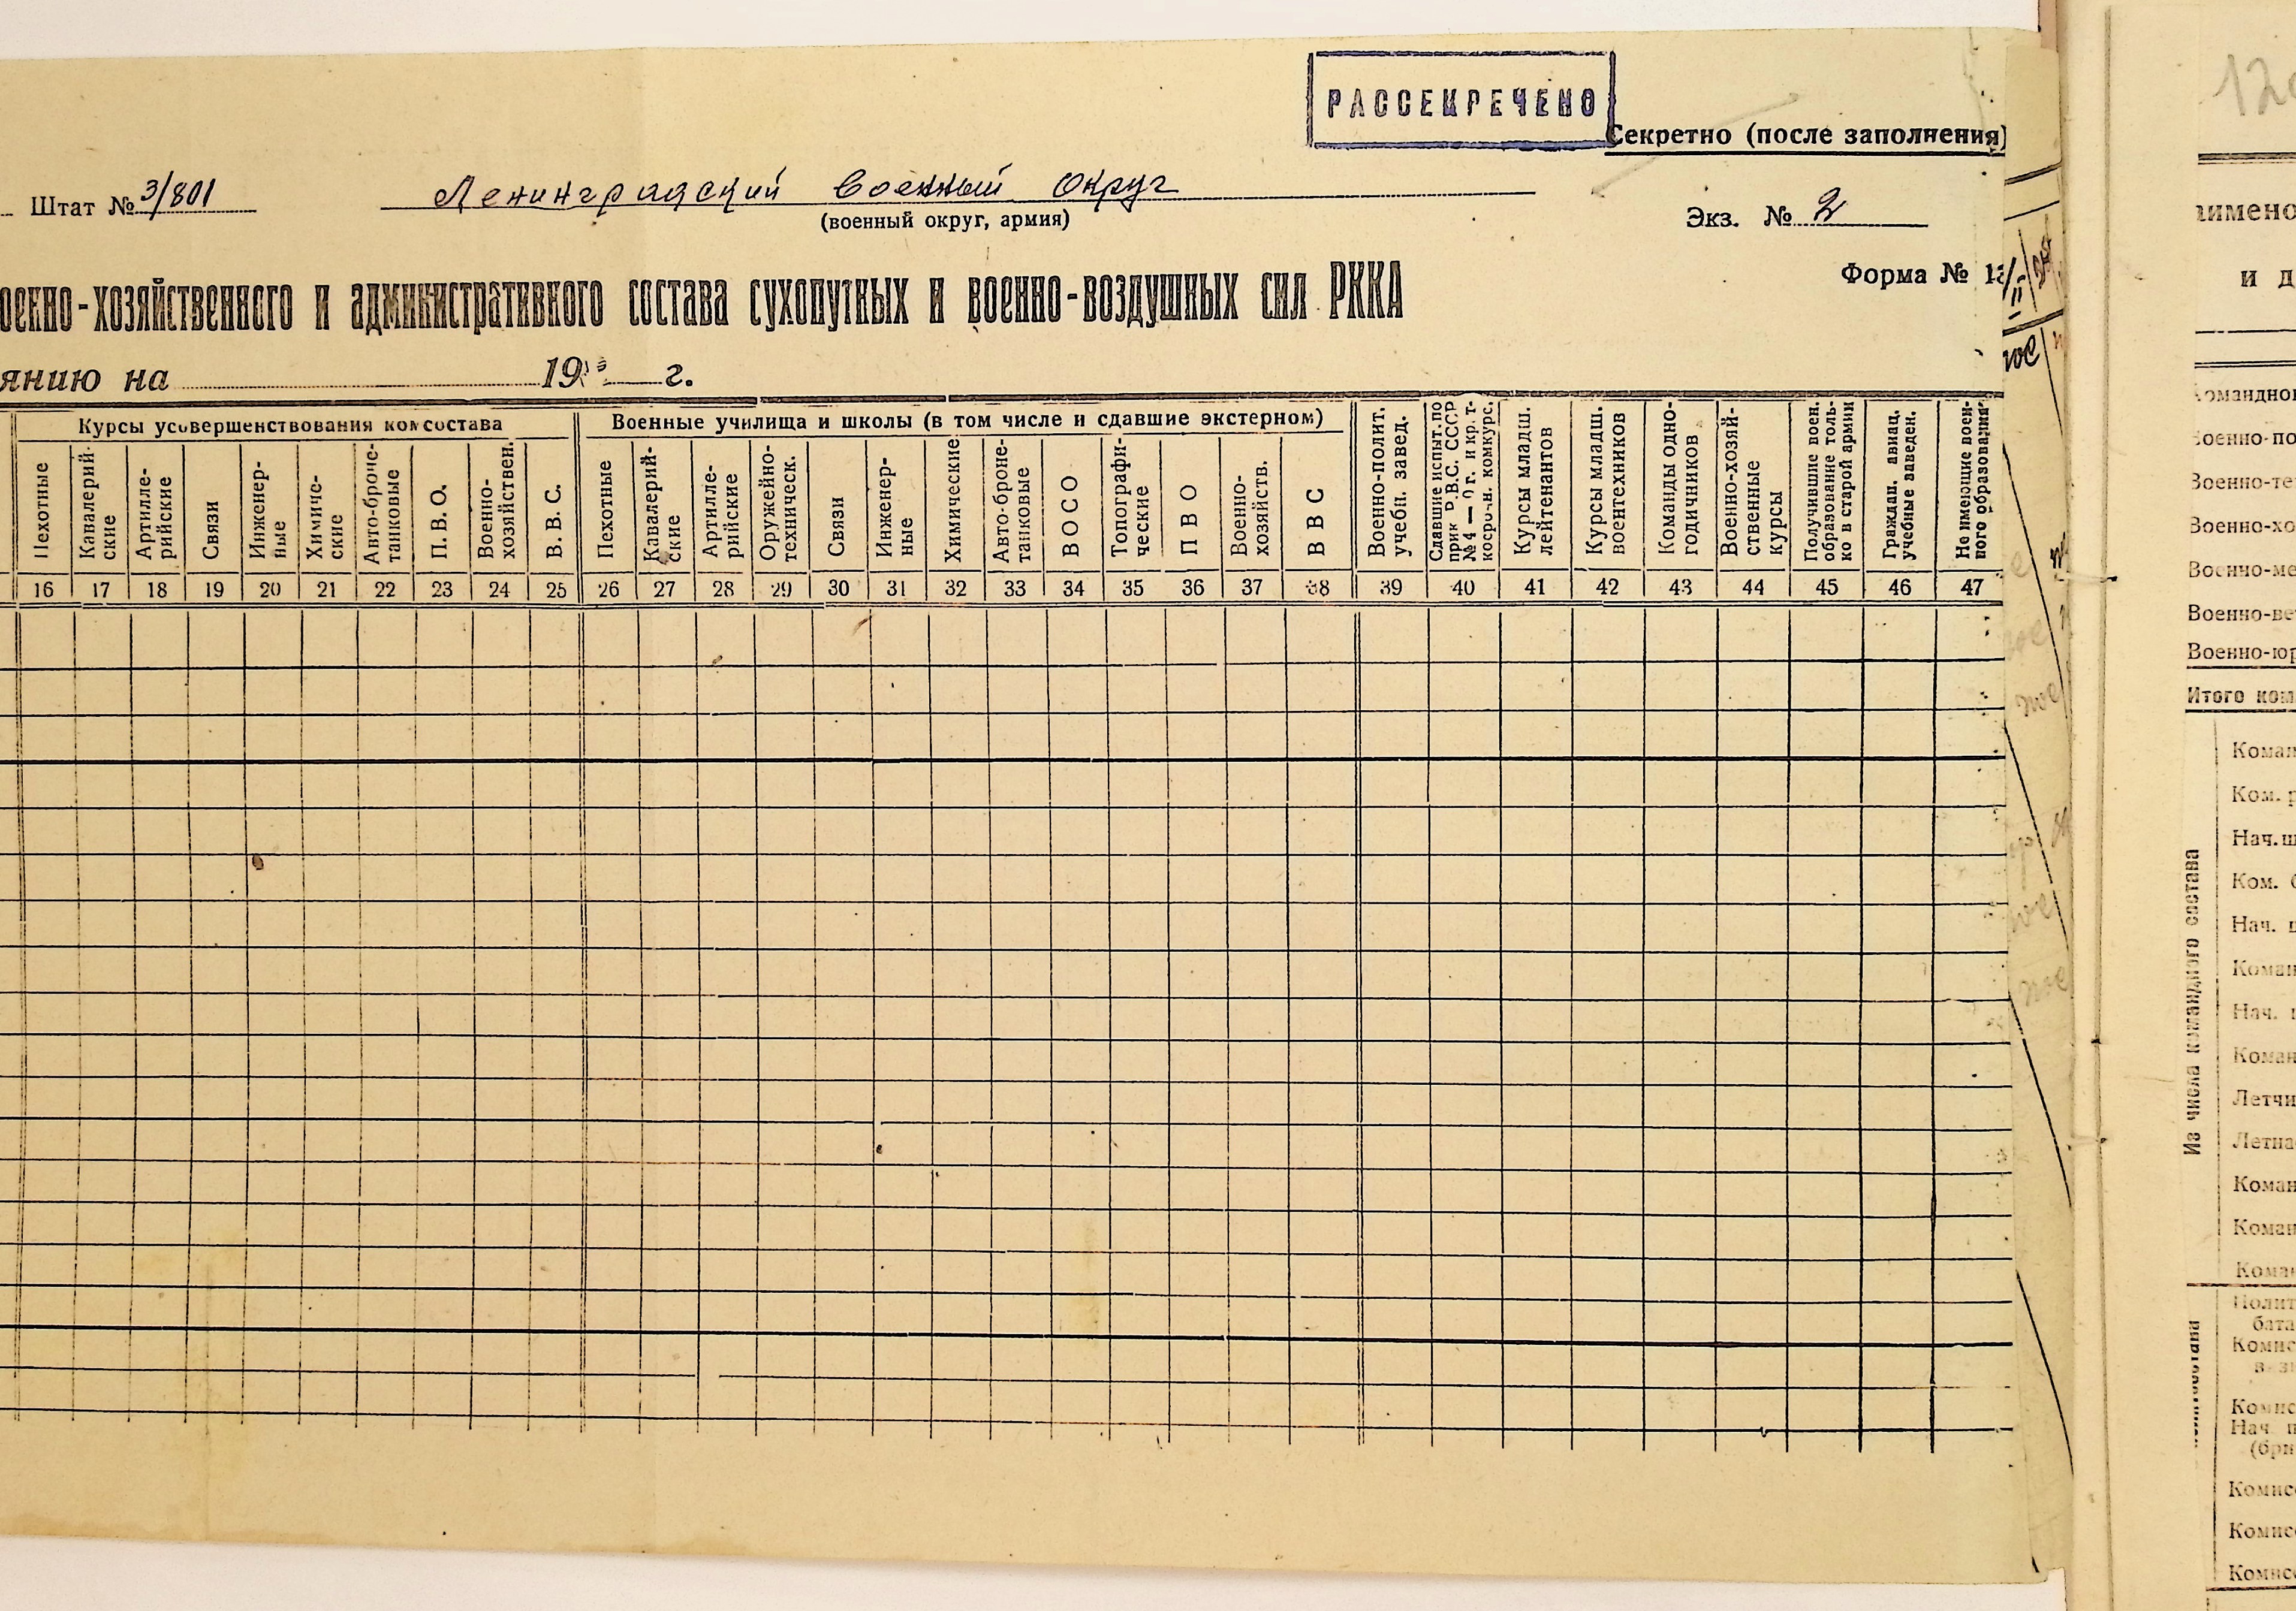 РАССЕКРЕЧЕНО
Секретно (после заполнения)
Штат № 3/801 Ленинградский военный округ
(военный округ, армия)
Экз. № 2
Форма №
оенно-хозяйственного и административного состава сухопутных и военно-воздушных сил РККА
янию на 19 г.
Курсы усовершенствования комсостава
Военные училища и школы (в том числе и сдавшие экстерном)
Пехотные
Кавалерий-
ские
Артилле-
рийские
Связи
Инженер-
ные
Химиче-
ские
Авто-броне-
танковые
П. В. О.
Военно-
хозяйствен.
В. В. С.
Пехотные
Кавалерий-
ские
Артилле-
рийские
Оружейно-
техническ.
Связи
Инженер-
ные
Химические
Авто-броне-
танковые
ВОСО
Топографи-
ческие
ПВО
Военно-
хозяйств.
ВВС
Военно-полит.
учебн. завед.
Сдавшие испыт. по
прик Р.В.С. СССР
№ 4 — г. и кр. т-
косрочн. комкурс.
Курсы младш.
лейтенантов
Курсы младш.
воентехников
Команды одно-
годичников
Военно-хозяй-
ственные
курсы
Получившие воен.
образование толь-
ко в старой армии
Граждан. авиац.
учебные заведен.
Не имеющие воен-
ного образования
16 17 18 19 20 21 22 23 24 25 26 27 28 29 30 31 32 33 34 35 36 37 38 39 40 41 42 43 44 45 46 47
аимено
и д
Командно
Военно-по
Военно-те
Военно-хо
Военно-ме
Военно-ве
Военно-юр
Итого ком
Из числа командного состава
Коман
Ком. р
Нач. ш
Ком. б
Нач. ш
Коман
Нач.
Коман
Летчи
Летна
Коман
Коман
Коман
Полит
бата
Комис
Комис
Нач
(бри
Комис
Комис
Комис